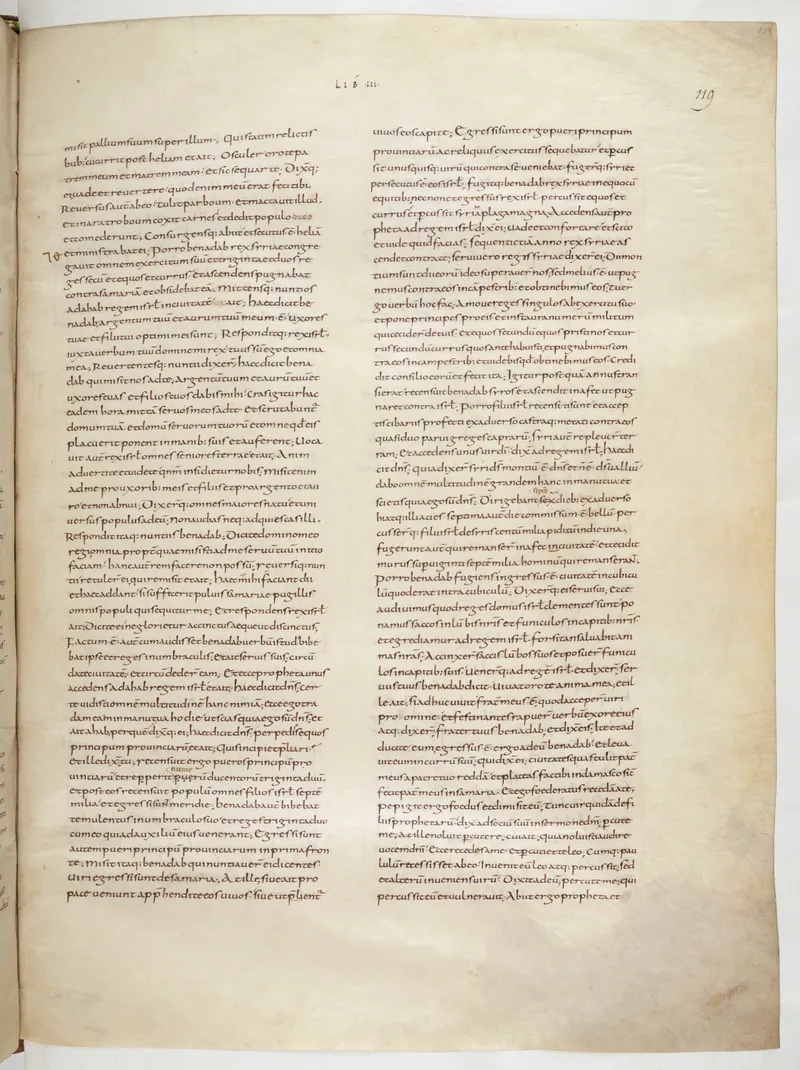 LIB III
119
misit pallium suum super illum., Qui statim relictis
bub; cucurrit post heliam et ait; Osculer oro te pa
trem meum et matrem meam; et sic sequar te. Dixq;
ei uade et reuertere quod enim meu erat feci tibi,
Reuersus aut abeo tulit par boum. et mactauit illud,
et in aratro boum coxit carnes et dedit populo
et comederunt; Consurgensq; abiit et secutus e helia
et ministrabat ei; Porro benadab rex syriae congre
gauit omnem exercitum suu et triginta et duos re
ges secu et equos et currus; et ascendens pugnabat
contra samaria et obsidebat ea. Mittensq; nuntios
ad ahab regem isrl in ciuitate ait; haec dicit be
nadab; argentum tuu et aurum tuu meum e. et uxores
tuae et filii tui optimi mei sunt; Responditq; rex isrl.
iuxta uerbum tuu domine mi rex tuus su ego et omnia
mea; Reuertentesq; nuntii dixer; haec dicit bena
dab qui misit nos ad te; Argentu tuum et auru tuu et
uxores tuas et filios tuos dabis mihi; Cras igitur hac
eadem hora mitta seruos meos ad te. et scrutabunt
domum tua. et domu seruorum tuoru et omne qd eis
placuerit ponent in manib; suis et auferent; Uoca
uit aut rex isrl omnes seniores terrae et ait. Anim
aduertite et uidete qnm insidietur nobis; Misit enim
ad me pro uxorib; meis et filiis et pro argento et au
ro et non abnui; Dixerq; omnes maiores natu et uni
uersus populus ad eu; non audias neq; adquiescas illi.
Respondit itaq; nuntiis benadab; Dicite domino meo
regi omnia propt quae misisti ad me seruu tuu initio
facia; hanc aut rem facere non possu; reuersiq; nun
tii retuler ei; qui remisit et ait; Haec mihi faciant dii
et haec addant; si suffecerit puluis samariae pugillis
omnis populi qui sequitur me; Et respondens rex isrl
ait; Dicite ei ne glorietur accinctus aeque ut discinctus;
Factum e. aut cum audisset benadab uerbu istud bibe
bat ipse et reges in umbraculis; et ait seruis suis; circu
date ciuitate; et circudeder eam; Et ecce propheta unus
accedens ad ahab regem isrl et ait; haec dicit dns; cer
te uidisti omne multitudine hanc nimia; ecce ego tra
dam eam in manu tua hodie ut scias quia ego su dns; et
ait ahab; per que dixitq; ei; haec dicit dns; per pedisequos
principum prouinciaru; et ait; Quis incipiet pliari.
et ille dixit; tu; recensuit ergo pueros principu pro
uinciaru et repperit numeru ducentoru triginta duu;
et post eos recensuit populu omnes filios isrl septe
milia. et egressi sunt meridie; benadab aut bibebat
temulentus in umbraculo suo et reges triginta duo
cum eo qui ad auxiliu eius uenerant; Egressi sunt
autem pueri principu prouinciarum in prima fron
te; Misit itaq; benadab qui nuntiauer ei dicentes
Uiri egressi sunt de samaria; At ille; siue ait pro
pace ueniunt apphendite eos uiuos; siue ut plient
uiuos eos capite; Egressi sunt ergo pueri principum
prouinciaru. ac reliquus exercitus sequebatur et pcus
sit unusquisq; uiru qui contra se ueniebat; fugerq; syri et
persecutus e. eos isrl; fugit q; benadab rex syriae in equo cu
equitib; nec non et egressus rex isrl percussit equos et
currus et pcussit syria plaga magna; Accedens aut pro
pheta ad regem isrl dix ei; uade et confortare et scito
et uide quid facias; sequenti eni anno rex syriae as
cendet contra te; serui uero regis syriae dixer ei; Dii mon
tium sunt dii eoru ideo superauer nos sed melius e. ut pug
nemus contra eos in capestrib; et obtinebimus eos; tu er
go uerbu hoc fac; Amoue reges singulos ab exercitu suo
et pone principes pro eis et instaura numeru militum
qui ceciderunt de tuis et equos secundu equos pristinos et cur
rus secundu currus quos ante habuisti; et pugnabimus con
tra eos in campestrib; et uidebis qd obtinebimus eos; Credi
dit consilio eoru et fecit ita; Igitur postqua annus tran
sierat recensuit benadab syros et ascendit in afec ut pug
naret contra isrl; Porro filii isrl recensiti sunt et accep
tis cibariis profecti ex aduerso castraq; metati contra eos
quasi duo parui greges capraru; syri aut repleuer ter
ram; Et accedens unus uir di; dix ad regem isrl; haec di
cit dns; quia dixer syri ds montiu e. dns et n e ds ualliu
dabo omne multitudine grandem hanc in manu tua et
scietis quia ego su dns; Dirigebant septe dieb; ex aduerso
hi atq; illi acies septima aut die commissum e. bellu; per
cusserq; filii isrl de syris centu milia peditu in die una;
fugerunt aut qui remanser in afec in ciuitate et cecidit
murus sup uiginti septe milia hominu qui remanseran;
Porro benadab fugiens ingressus e. ciuitate in cubicu
lu quod erat intra cubiculu; Dixerq; ei serui sui; Ecce
audiuimus quod reges domus isrl clementes sunt; po
namus saccos in lubis nris et funiculos in capitib; nris
et egrediamur ad regem isrl forsitan saluabit ani
mas nras; Accinxer saccis lubos suos et posuer funicu
los in capitib; suis; Uenerq; ad rege isrl et dixer; ser
uus tuus benadab dicit; Uiuat oro te anima mea; et il
le ait; si adhuc uiuit frat meus e. quod acceper uiri
pro omine. et festinantes rapuer uerbu ex ore eius
atq; dixer; frater tuus benadab; et dix eis; Ite et ad
ducite eum; egressus e. ergo ad eu benadab et leua
uit eum in curru suu; qui dix ei; ciuitates quas tulit pat
meus a patre tuo redda et plateas fac tibi in damasco sic
fecit pat meus in samaria. et ego foederatus recedam a te;
pepigit ergo foedus et dimisit eu; tunc uir quida de fi
liis prophetaru. dix ad sociu suu in sermone dni; pcute
me; at ille noluit pcutere; cui ait; quia noluisti audire
uocem dni. ecce recedes a me et pcutiet te leo; Cumq; pau
lulu recessisset ab eo. Inuenit eu leo atq; percussit; sed
et alteru inueniens uiru. Dixit ad eu; percute me; qui
percussit eu et uulnerauit; Abiit ergo propheta et